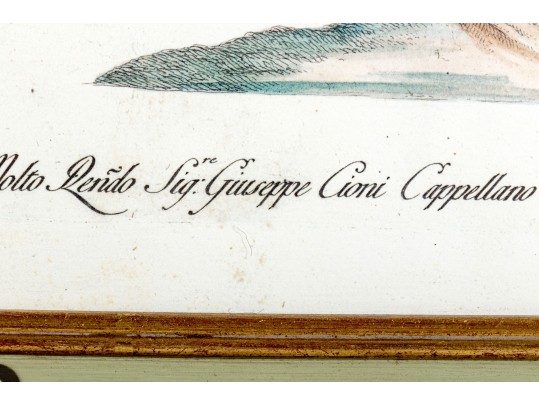 Molto Ren̄do Sig.re Giuseppe Cioni Cappellano